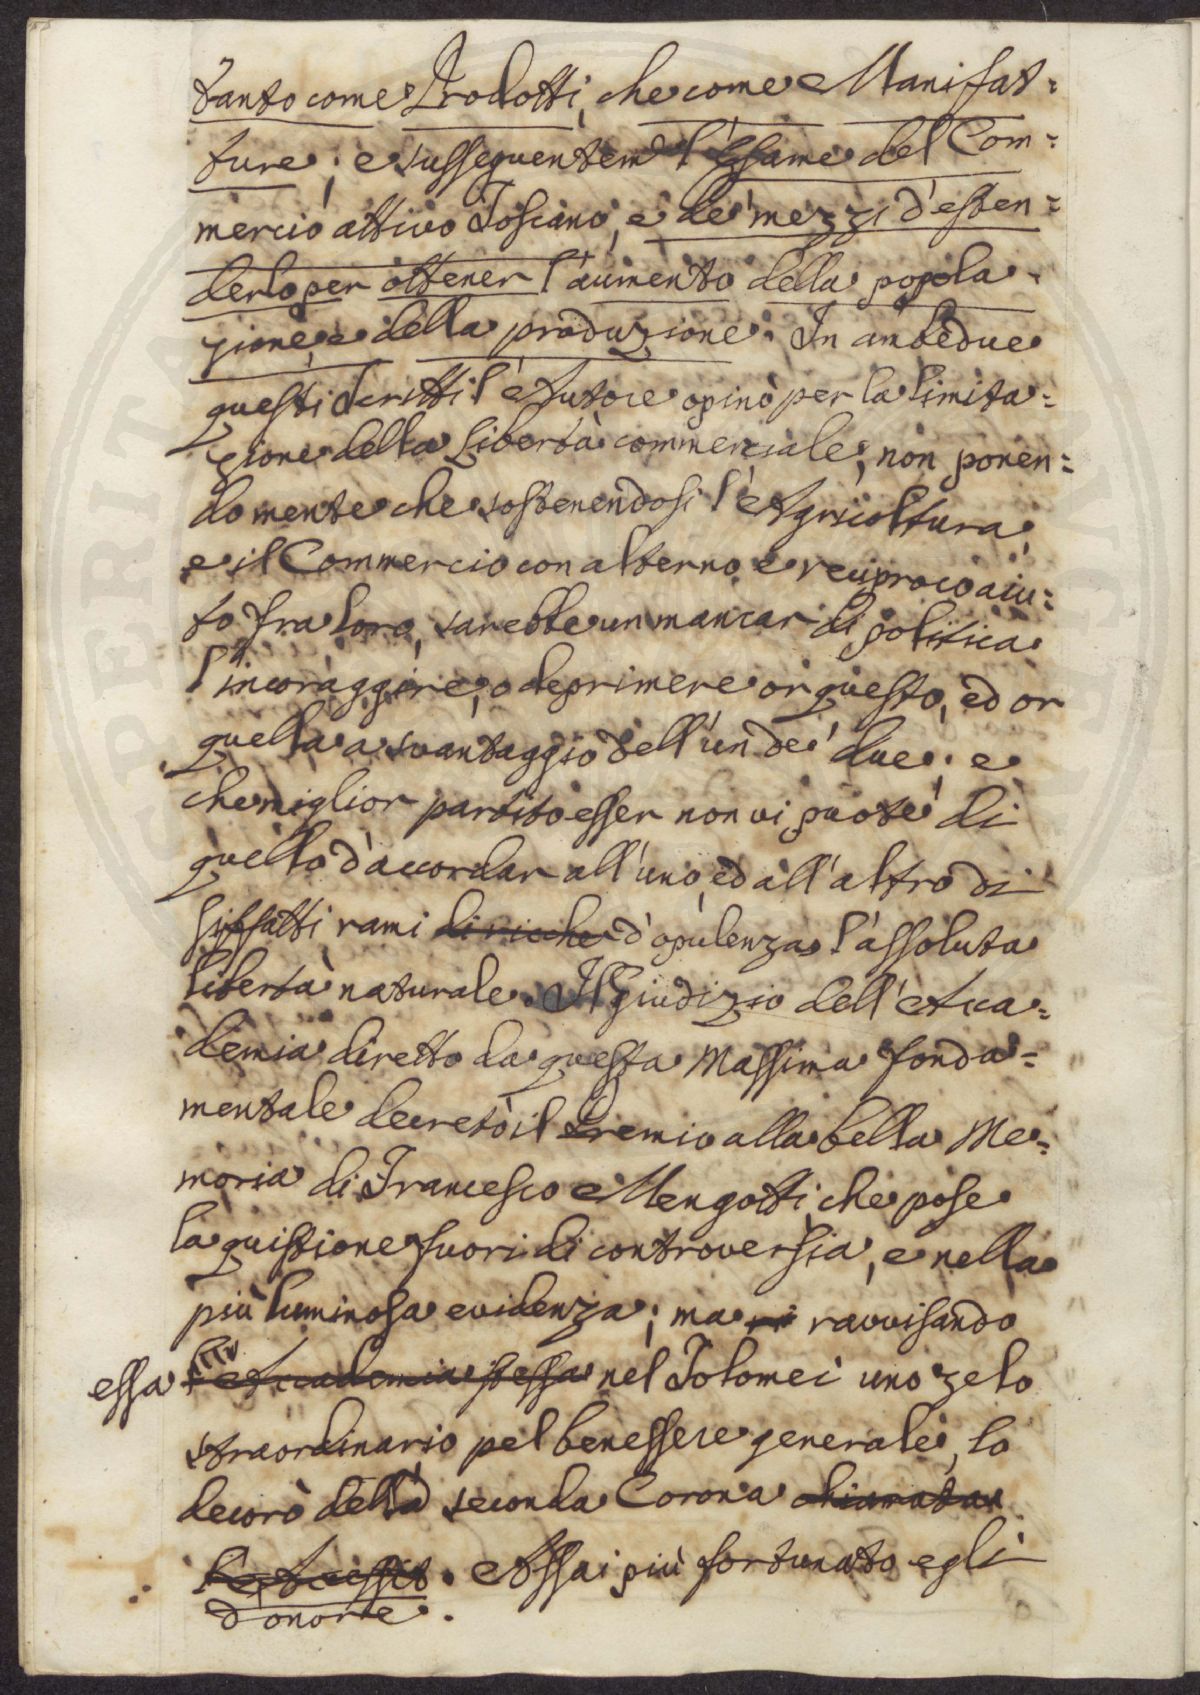 tanto come Prodotti, che come Manifat=
ture; e susseguentem.e l'Esame del Com=
mercio attivo Toscano, e de' mezzi d'esten=
derlo per ottener l'aumento della popola=
zione, e della produzione. In ambedue
questi scritti l'Autore opinò per la limita=
zione della libertà commerciale, non ponen=
do mente che sostenendosi l'Agricoltura,
e il Commercio con alterno e reciproco aiu=
to fra loro, sarebbe un mancar di politica
l'incoraggire, o deprimere or questo, ed or
quella a svantaggio dell'un de' due; e
che miglior partito esser non vi puote di
quello d'accordar all'uno, ed all'altro di
siffatti rami di ricche d'opulenza l'assoluta
libertà naturale. Il Giudizio dell'Acca=
demia diretto da questa Massima fonda=
mentale decretò il Premio alla bella Me=
moria di Francesco Mengotti, che pose
la quistione fuori di controversia, e nella
più luminosa evidenza; ma ravvisando
essa l'Accademia stessa nel Tolomei uno zelo
straordinario pel benessere generale, lo
decorò della seconda Corona chiamata
l'Accessit. Assai più fortunato egli
d'onore.